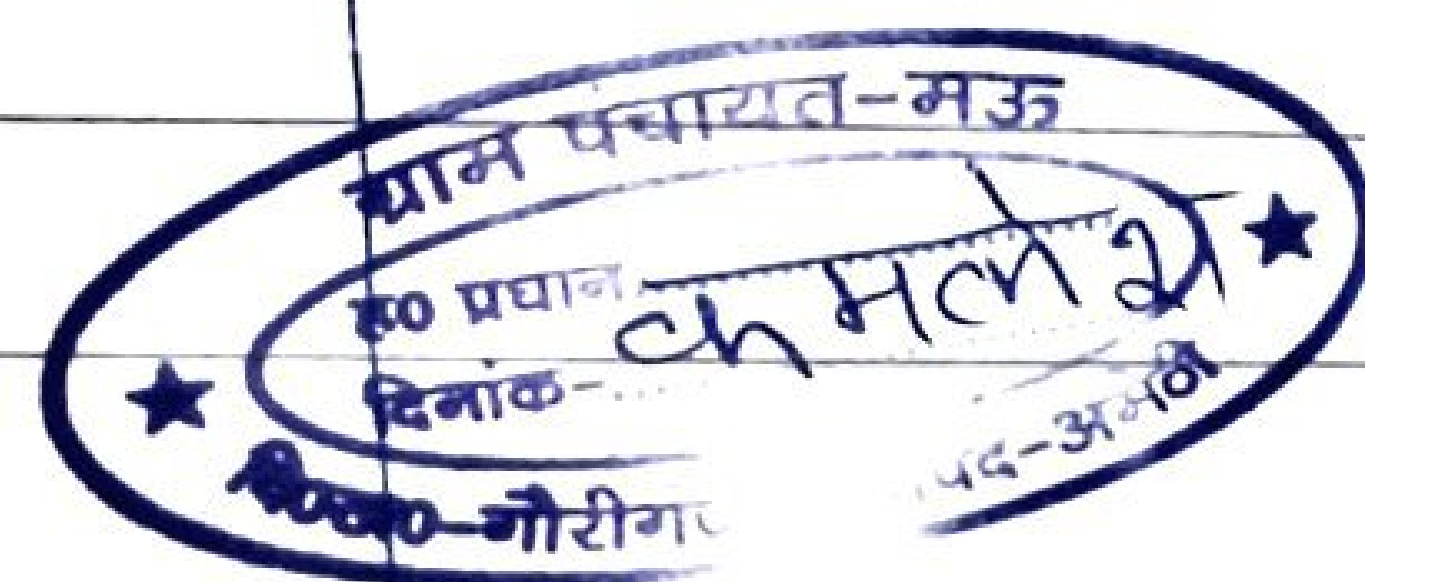 ग्राम पंचायत-मऊ
ह0 प्रधान
कमलेश
दिनांक-
वि0ख0-गौरीग
पद-अमेठी